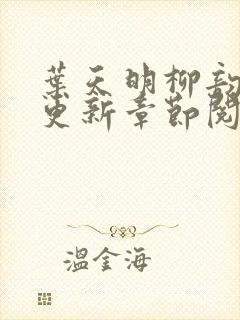 葉天明柳韵
更新章節閱
溫金海